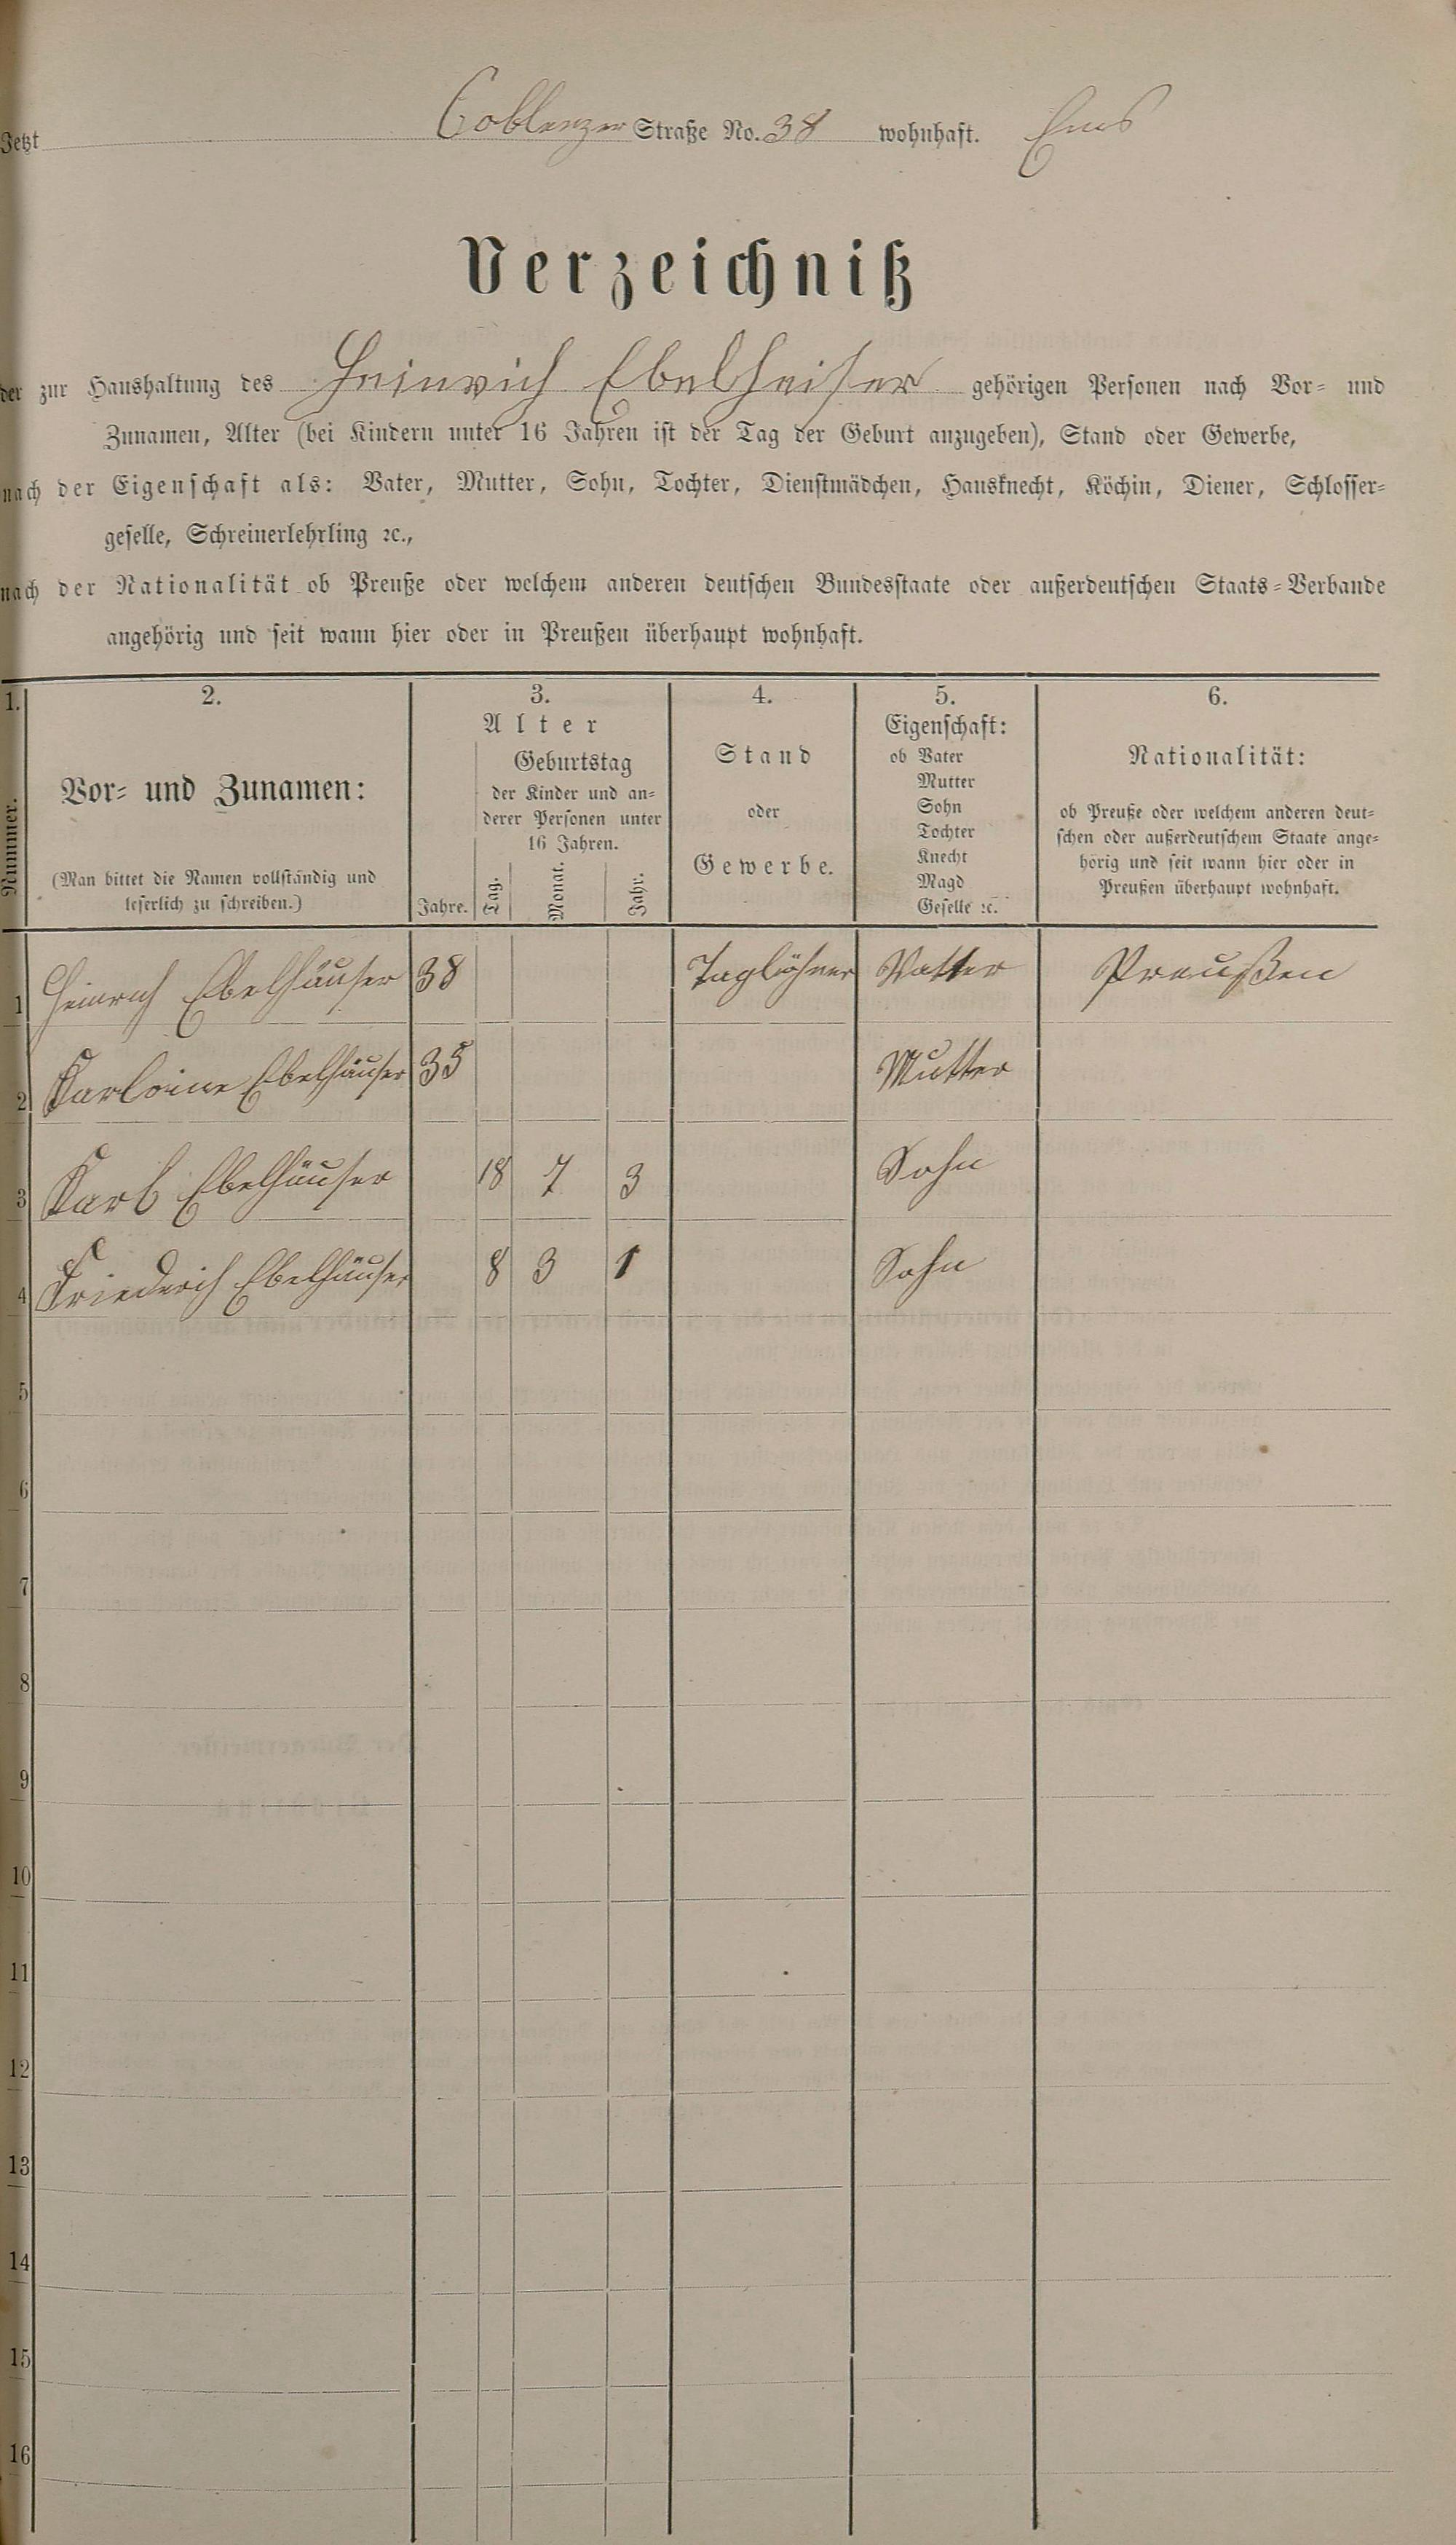 Jetzt Coblenzer Straße No. 38 wohnhaft. Ems
Verzeichniß
der zur Haushaltung des Heinrich Ebelheiser gehörigen Personen nach Vor- und
Zunamen, Alter (bei Kindern unter 16 Jahren ist der Tag der Geburt anzugeben), Stand oder Gewerbe,
nach der Eigenschaft als: Vater, Mutter, Sohn, Tochter, Dienstmädchen, Hausknecht, Köchin, Diener, Schlosser-
geselle, Schreinerlehrling ꝛc.,
nach der Nationalität ob Preuße oder welchem anderen deutschen Bundesstaate oder außerdeutschen Staats-Verbande
angehörig und seit wann hier oder in Preußen überhaupt wohnhaft.
1.
Nummer.
2.
Vor- und Zunamen:
(Man bittet die Namen vollständig und
leserlich zu schreiben.)
3.
Alter
Geburtstag
der Kinder und an-
derer Personen unter
16 Jahren.
Jahre. Tag. Monat. Jahr.
4.
Stand
oder
Gewerbe.
5.
Eigenschaft:
ob Vater
Mutter
Sohn
Tochter
Knecht
Magd
Geselle ꝛc.
6.
Nationalität:
ob Preuße oder welchem anderen deut-
schen oder außerdeutschem Staate ange-
hörig und seit wann hier oder in
Preußen überhaupt wohnhaft.
1 Heinrich Ebelhäuser 38 Taglöhner Vatter Preußen
2 Karloine Ebelhäuser 35 Mutter
3 Karl Ebelhäuser 18 7 3 Sohn
4 Friederich Ebelhäuser 8 3 1 Sohn
5
6
7
8
9
10
11
12
13
14
15
16